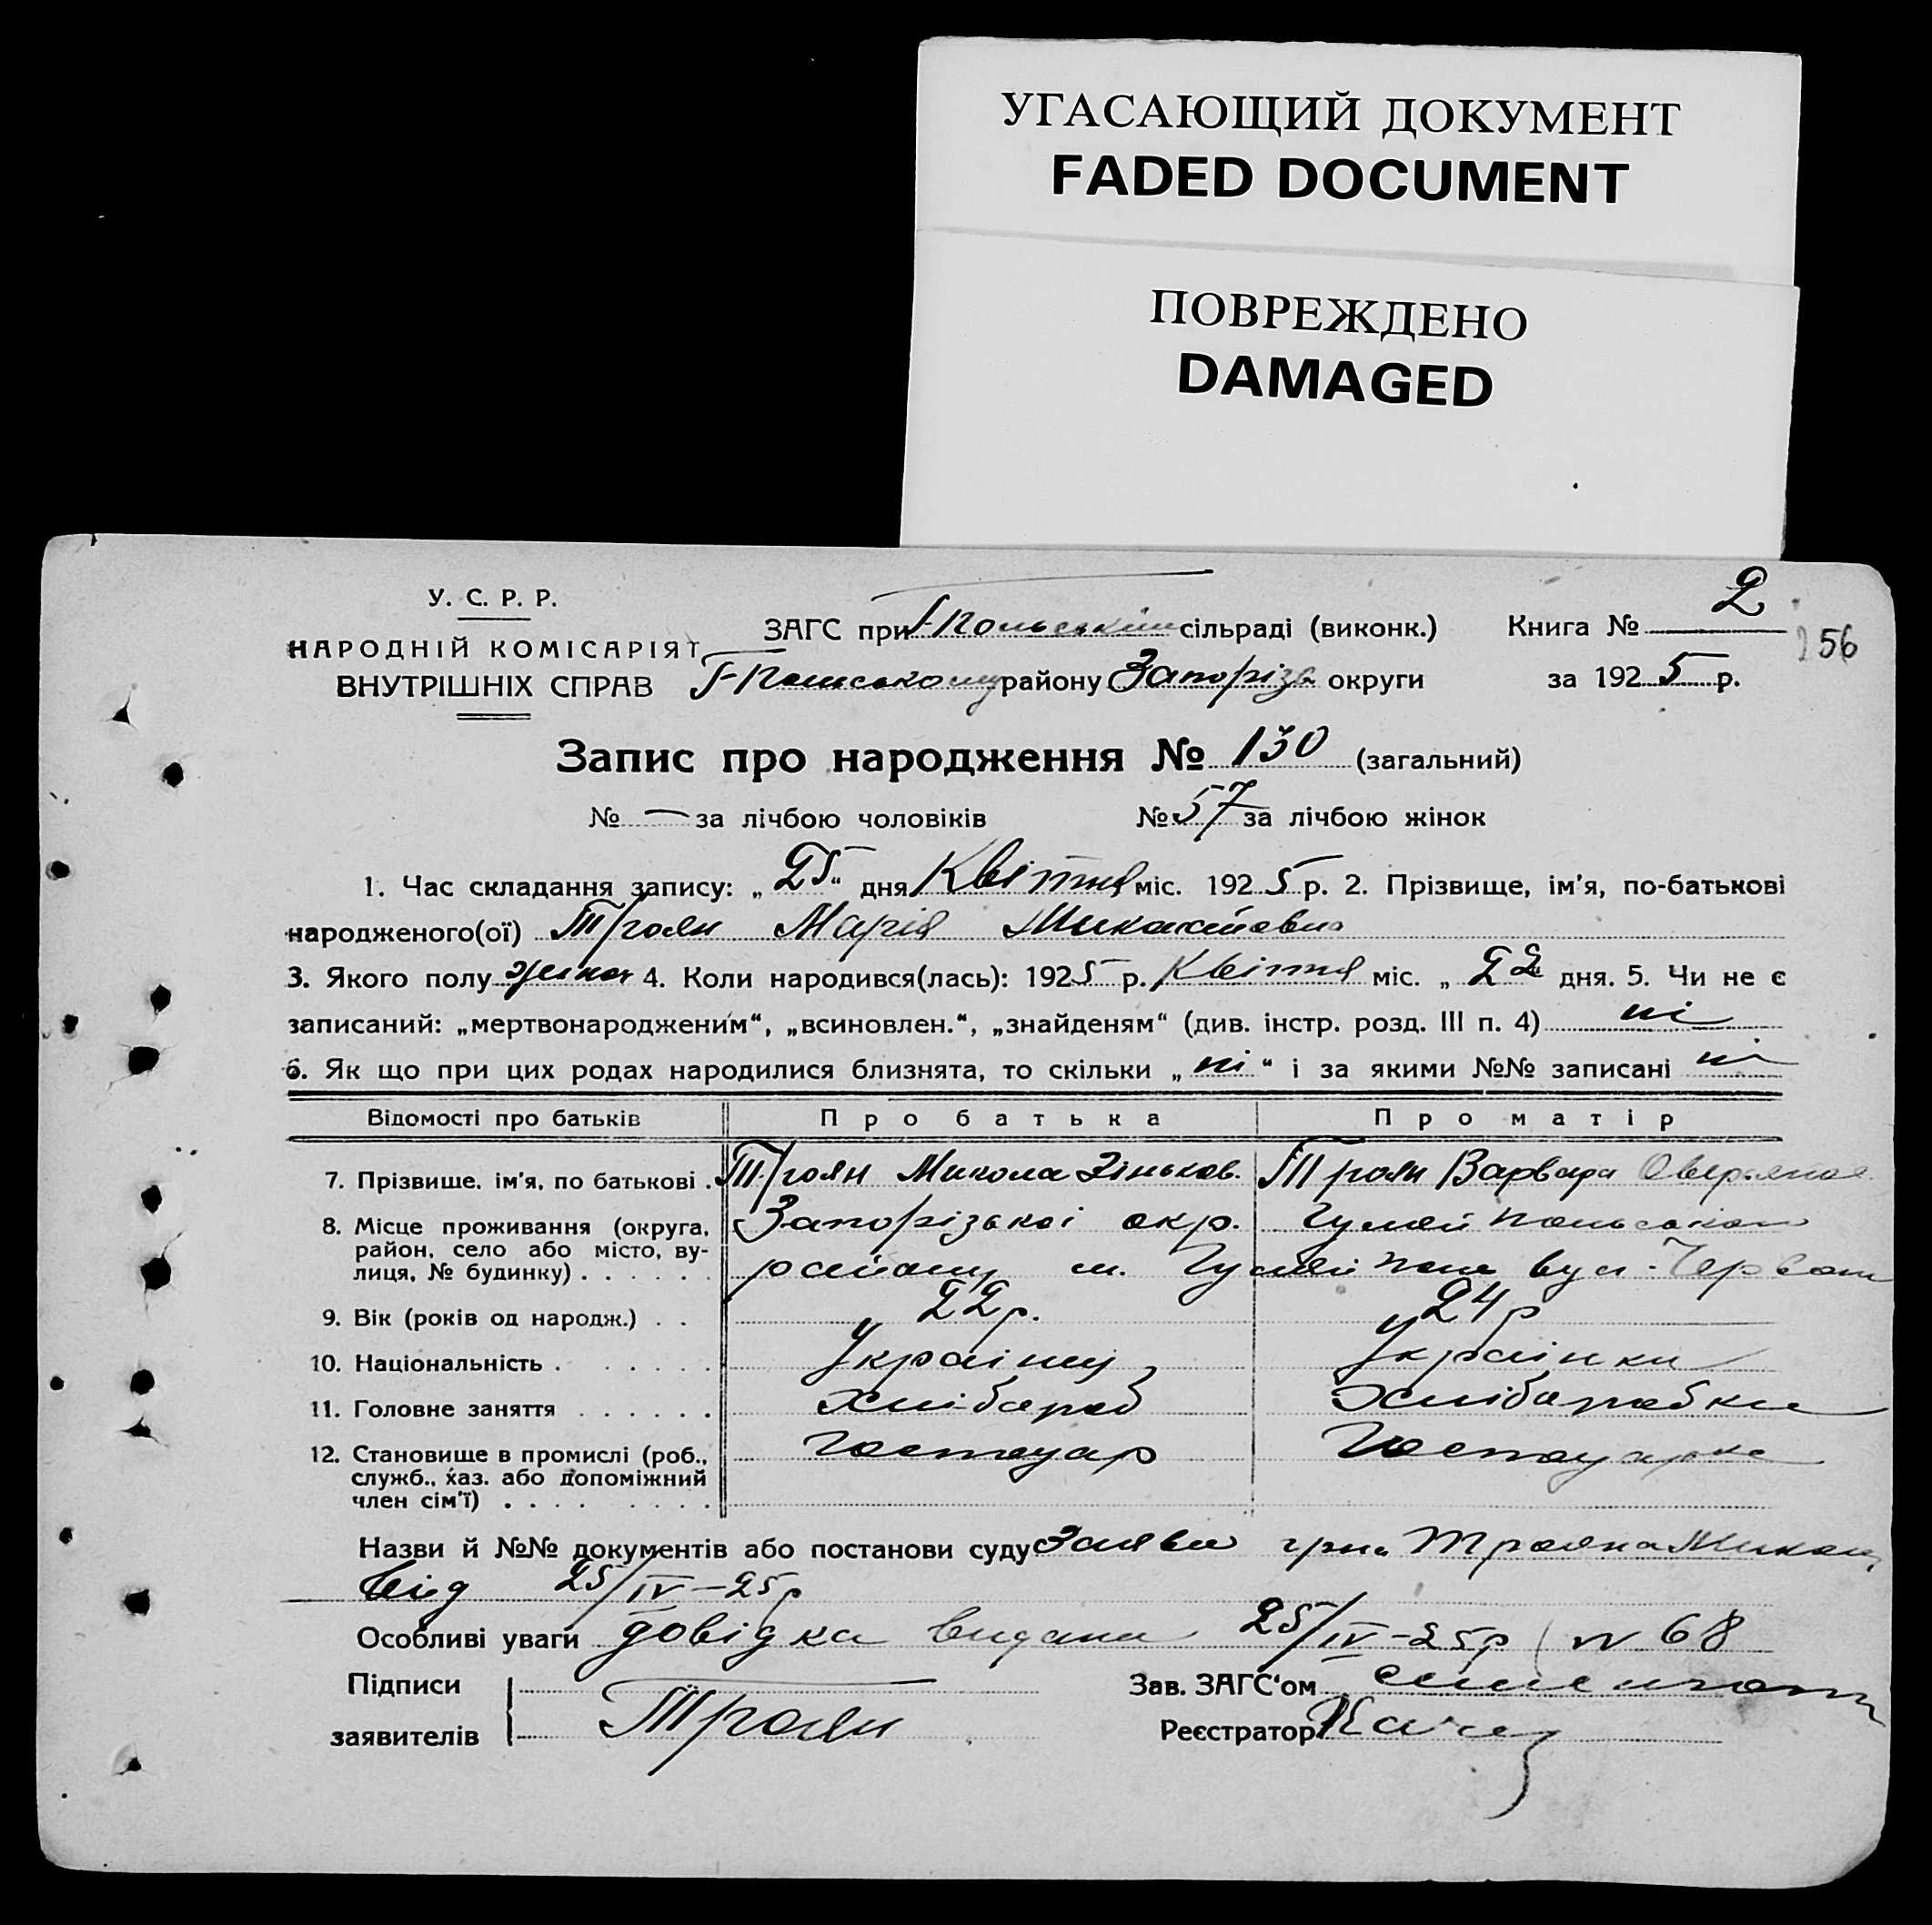 УГАСАЮЩИЙ ДОКУМЕНТ
FADED DOCUMENT
ПОВРЕЖДЕНО
DAMAGED
У. С. Р. Р.
НАРОДНІЙ КОМІСАРІЯТ
ВНУТРІШНІХ СПРАВ
ЗАГС при Г-Польській сільраді (виконк.)
Г-Польському району Запорізь округи
Книга № 2
156
за 1925 р.
Запис про народження № 130 (загальний)
№ — за лічбою чоловіків № 57 за лічбою жінок
1. Час складання запису: „25“ дня Квітня міс. 1925 р. 2. Прізвище, ім'я, по-батькові
народженого(ої) Троян Марія Миколаївна
3. Якого полу жіноч 4. Коли народився(лась): 1925 р. Квітня міс. „22 дня. 5. Чи не є
записаний: „мертвонародженим“, „всиновлен.“, „знайденям“ (див. інстр. розд. III п. 4) ні
6. Як що при цих родах народилися близнята, то скільки „ні“ і за якими №№ записані ні
Відомості про батьків Про батька Про матір
7. Прізвище, ім'я, по батькові . Троян Микола Зіньков. Троян Варвара
8. Місце проживання (округа, район, село або місто, вулиця, № будинку) . . . . . . Запорізької окр. Гуляй Польського
району с. Гуляй Поле вул. Червон
9. Вік (років од народж.) . . 22 р. 24 р
10. Національність . . . . . . Українец Українка
11. Головне заняття . . . . . . Хлібороб Хліборобка
12. Становище в промислі (роб., служб., хаз. або допоміжний член сім'ї) . . . . . . . . Господар Господарка
Назви й №№ документів або постанови суду Заява гр-на Трояна Миколи
від 25/IV-25р
Особливі уваги довідка видана 25/IV-25р № 68
Підписи
заявителів Троян
Зав. ЗАГС'ом
Реєстратор